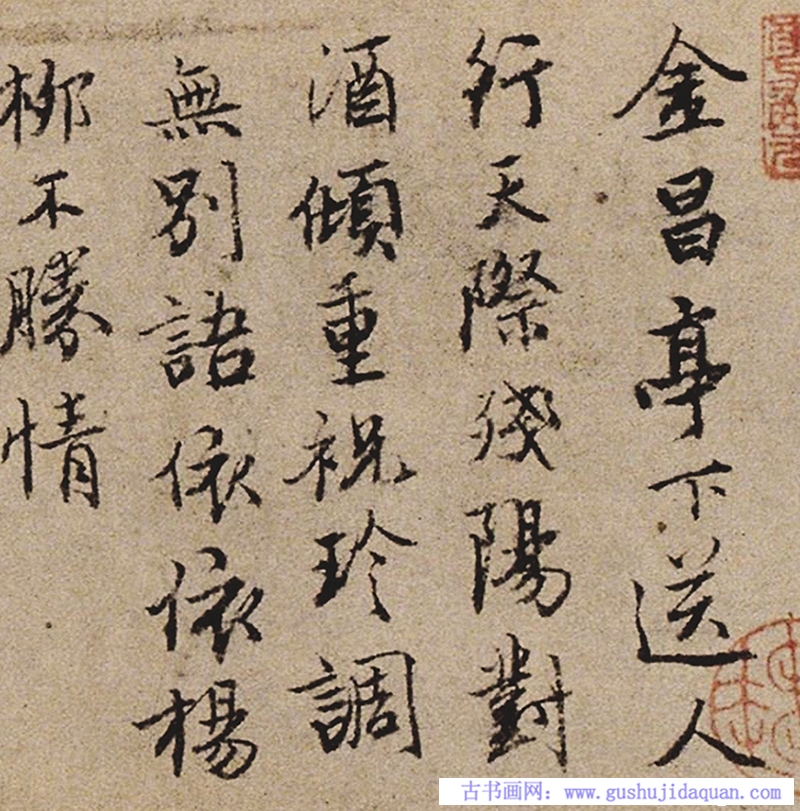 金昌亭下送人
行天際殘陽對
酒傾重祝珍調
無別語依依楊
柳不勝情
古书画网：www.gushujidaquan.com